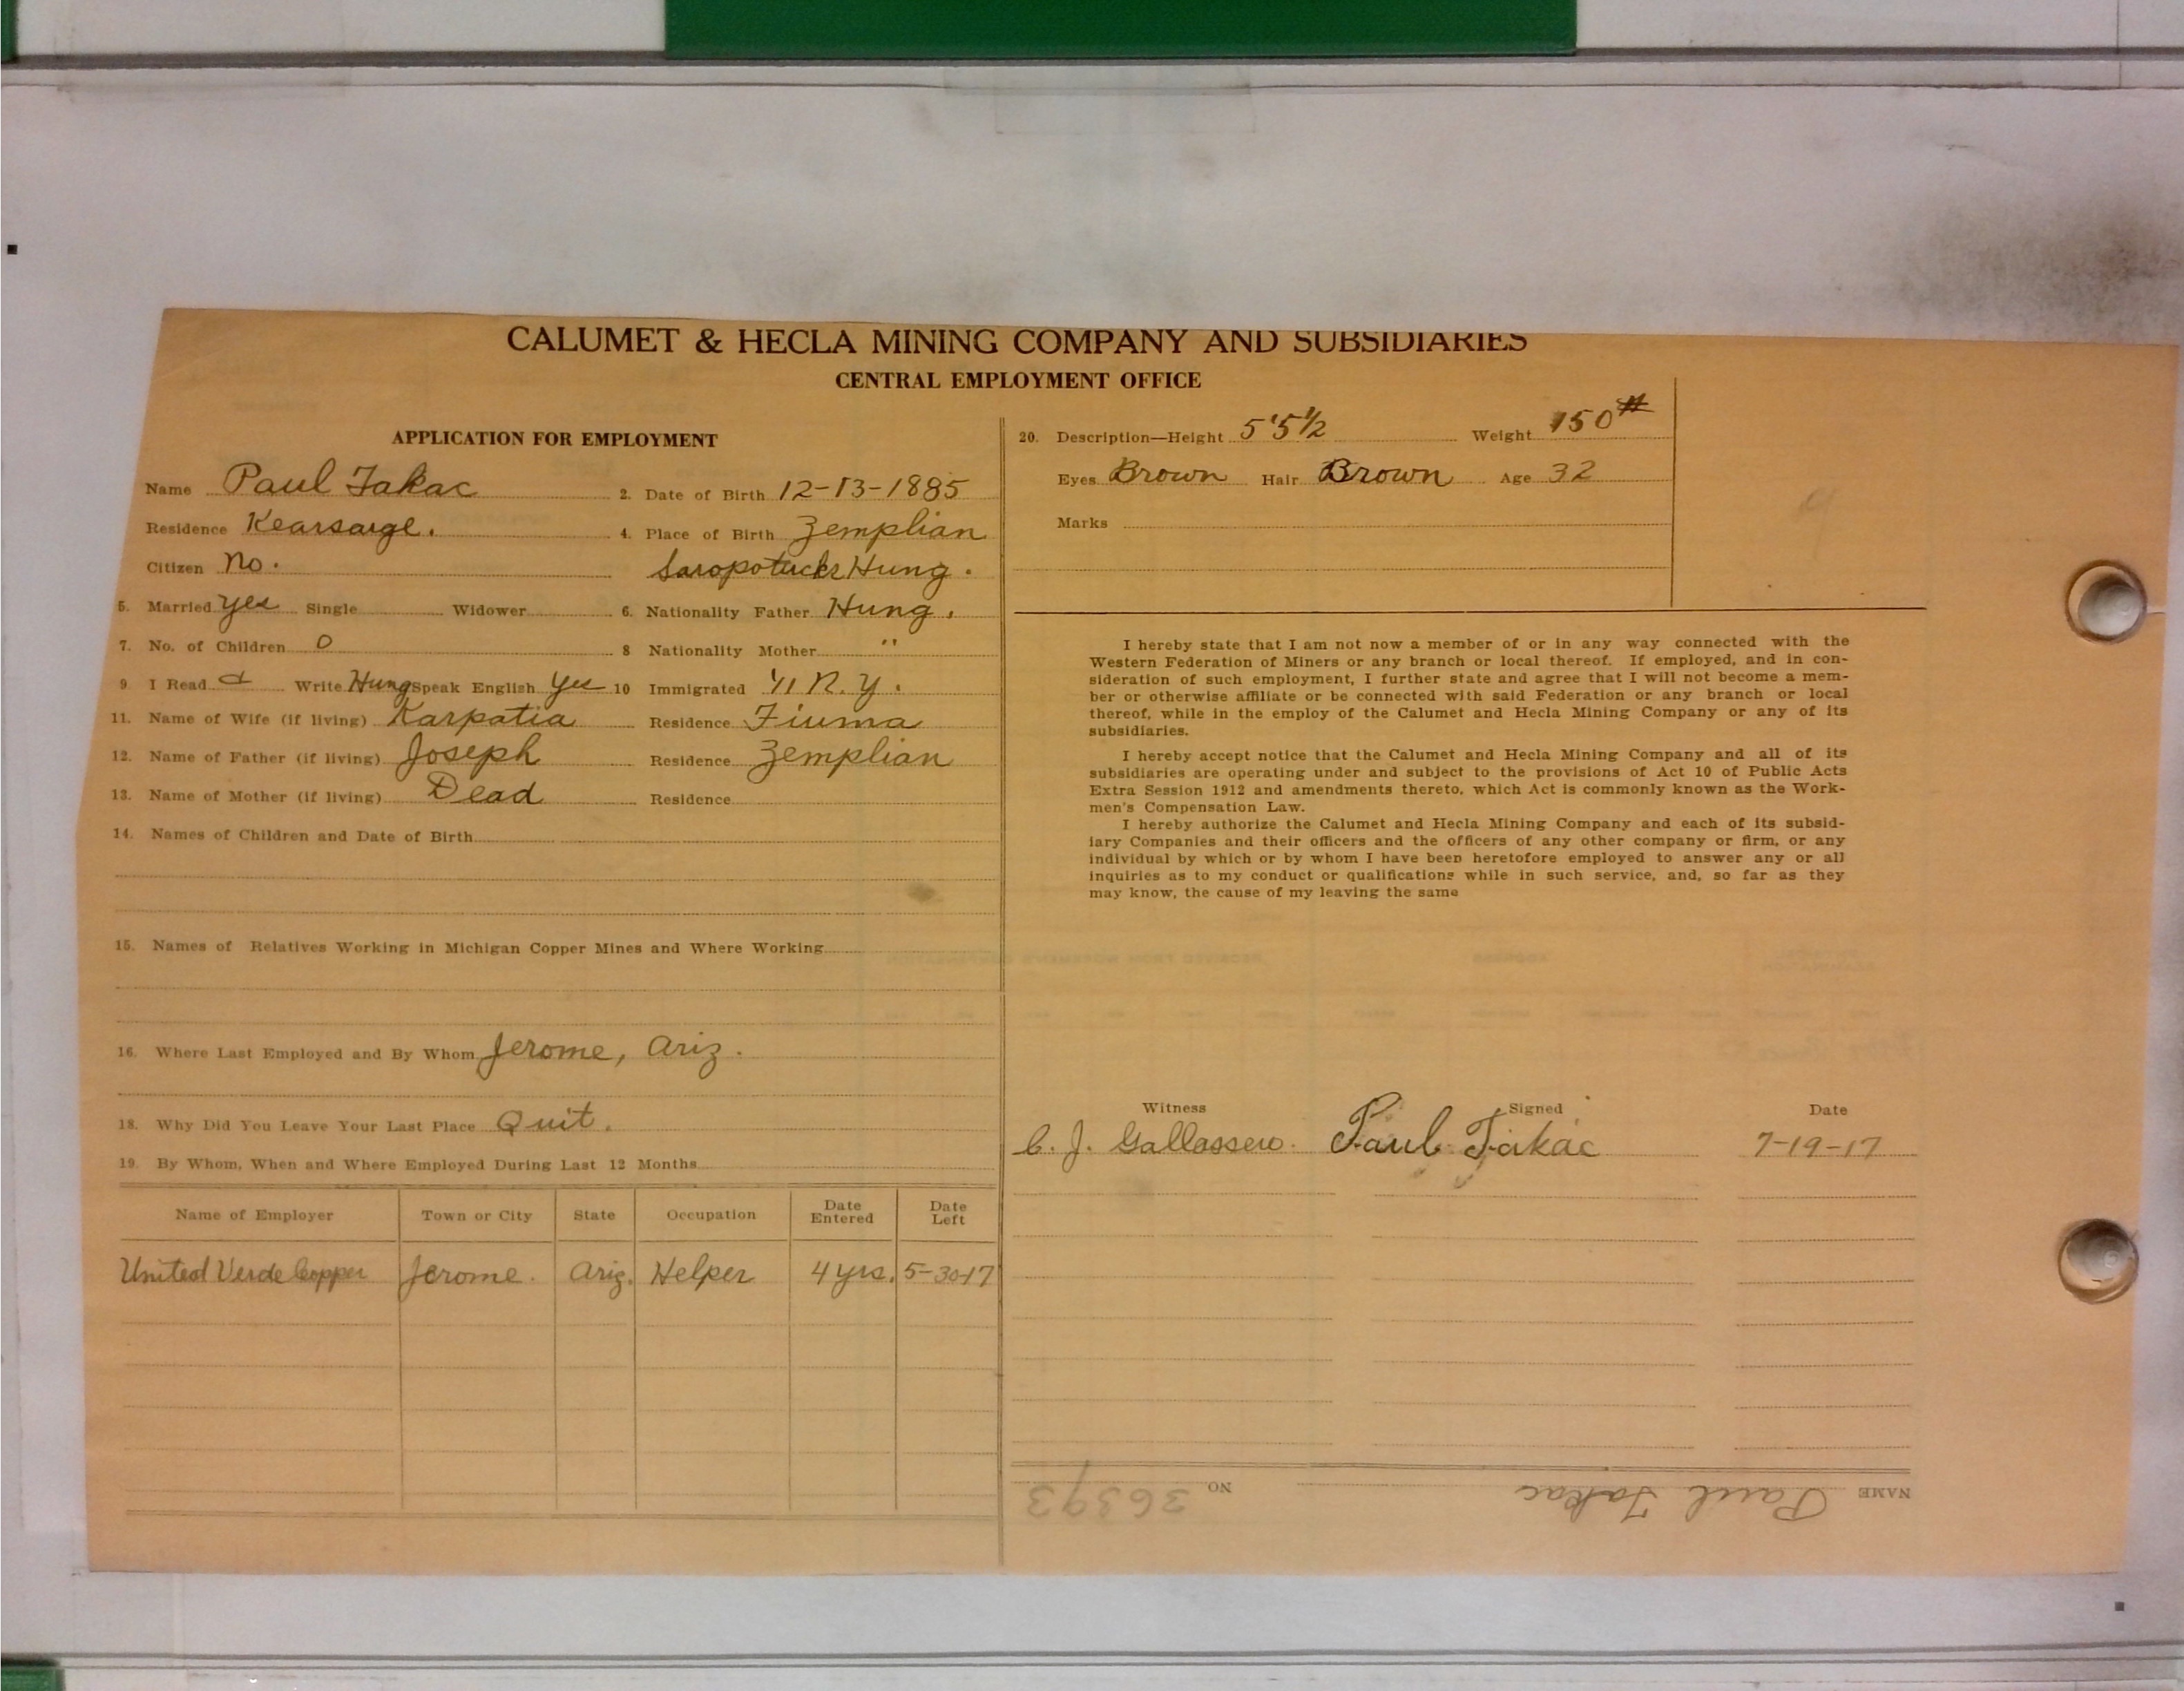 CALUMET & HECLA MINING COMPANY AND SUBSIDIARIES
CENTRAL EMPLOYMENT OFFICE
APPLICATION FOR EMPLOYMENT
Name Paul Takac 2. Date of Birth 12-13-1885
Residence Kearsarge. 4. Place of Birth Zemplian
Citizen No. Saropotucks Hung.
5. Married yes Single Widower 6. Nationality Father Hung.
7. No. of Children 0 8 Nationality Mother "
9. I Read & Write Hung Speak English Yes 10 Immigrated '11 N.Y.
11. Name of Wife (if living) Karpatia Residence Fiuma
12. Name of Father (if living) Joseph Residence Zemplian
13. Name of Mother (if living) Dead Residence
14. Names of Children and Date of Birth
15. Names of Relatives Working in Michigan Copper Mines and Where Working
16. Where Last Employed and By Whom Jerome, Ariz.
18. Why Did You Leave Your Last Place Quit.
19. By Whom, When and Where Employed During Last 12 Months
Name of Employer Town or City State Occupation Date Entered Date Left
United Verde Copper Jerome. Ariz. Helper 4 yrs. 5-30-17
20. Description—Height 5'5½ Weight 150#
Eyes Brown Hair Brown Age 32
Marks
I hereby state that I am not now a member of or in any way connected with the
Western Federation of Miners or any branch or local thereof. If employed, and in con-
sideration of such employment, I further state and agree that I will not become a mem-
ber or otherwise affiliate or be connected with said Federation or any branch or local
thereof, while in the employ of the Calumet and Hecla Mining Company or any of its
subsidiaries.
I hereby accept notice that the Calumet and Hecla Mining Company and all of its
subsidiaries are operating under and subject to the provisions of Act 10 of Public Acts
Extra Session 1912 and amendments thereto, which Act is commonly known as the Work-
men's Compensation Law.
I hereby authorize the Calumet and Hecla Mining Company and each of its subsid-
iary Companies and their officers and the officers of any other company or firm, or any
individual by which or by whom I have been heretofore employed to answer any or all
inquiries as to my conduct or qualifications while in such service, and, so far as they
may know, the cause of my leaving the same
Witness Signed Date
C. J. Gallassero. Paul Takac 7-19-17
NAME Paul Takac NO. 36393